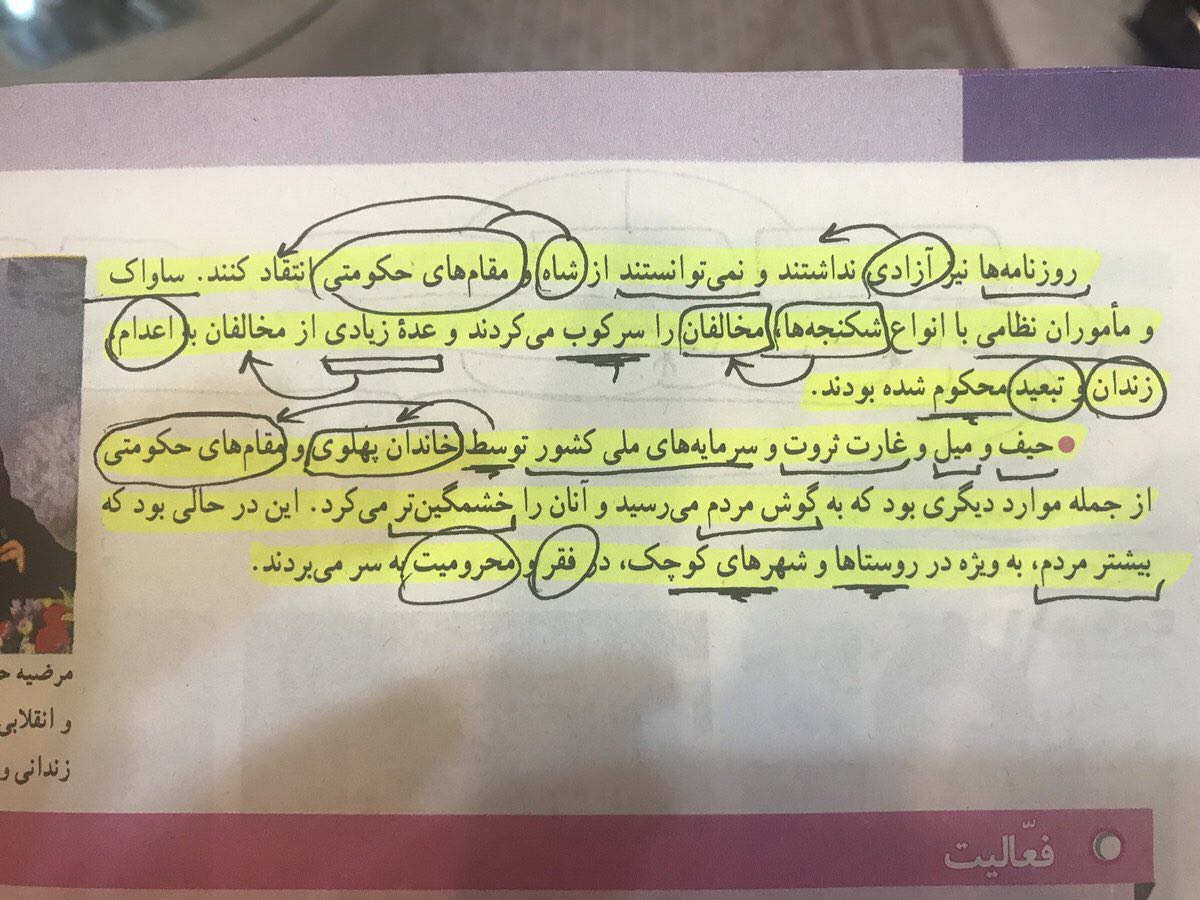 روزنامه‌ها نیز آزادی نداشتند و نمی‌توانستند از شاه و مقام‌های حکومتی انتقاد کنند. ساواک
و مأموران نظامی با انواع شکنجه‌ها، مخالفان را سرکوب می‌کردند و عدهٔ زیادی از مخالفان به اعدام،
زندان و تبعید محکوم شده بودند.
● حیف و میل و غارت ثروت و سرمایه‌های ملی کشور توسط خاندان پهلوی و مقام‌های حکومتی
از جمله موارد دیگری بود که به گوش مردم می‌رسید و آنان را خشمگین‌تر می‌کرد. این در حالی بود که
بیشتر مردم، به ویژه در روستاها و شهرهای کوچک، در فقر و محرومیت به سر می‌بردند.
مرضیه
و انقلابی
زندانی و
فعّالیت